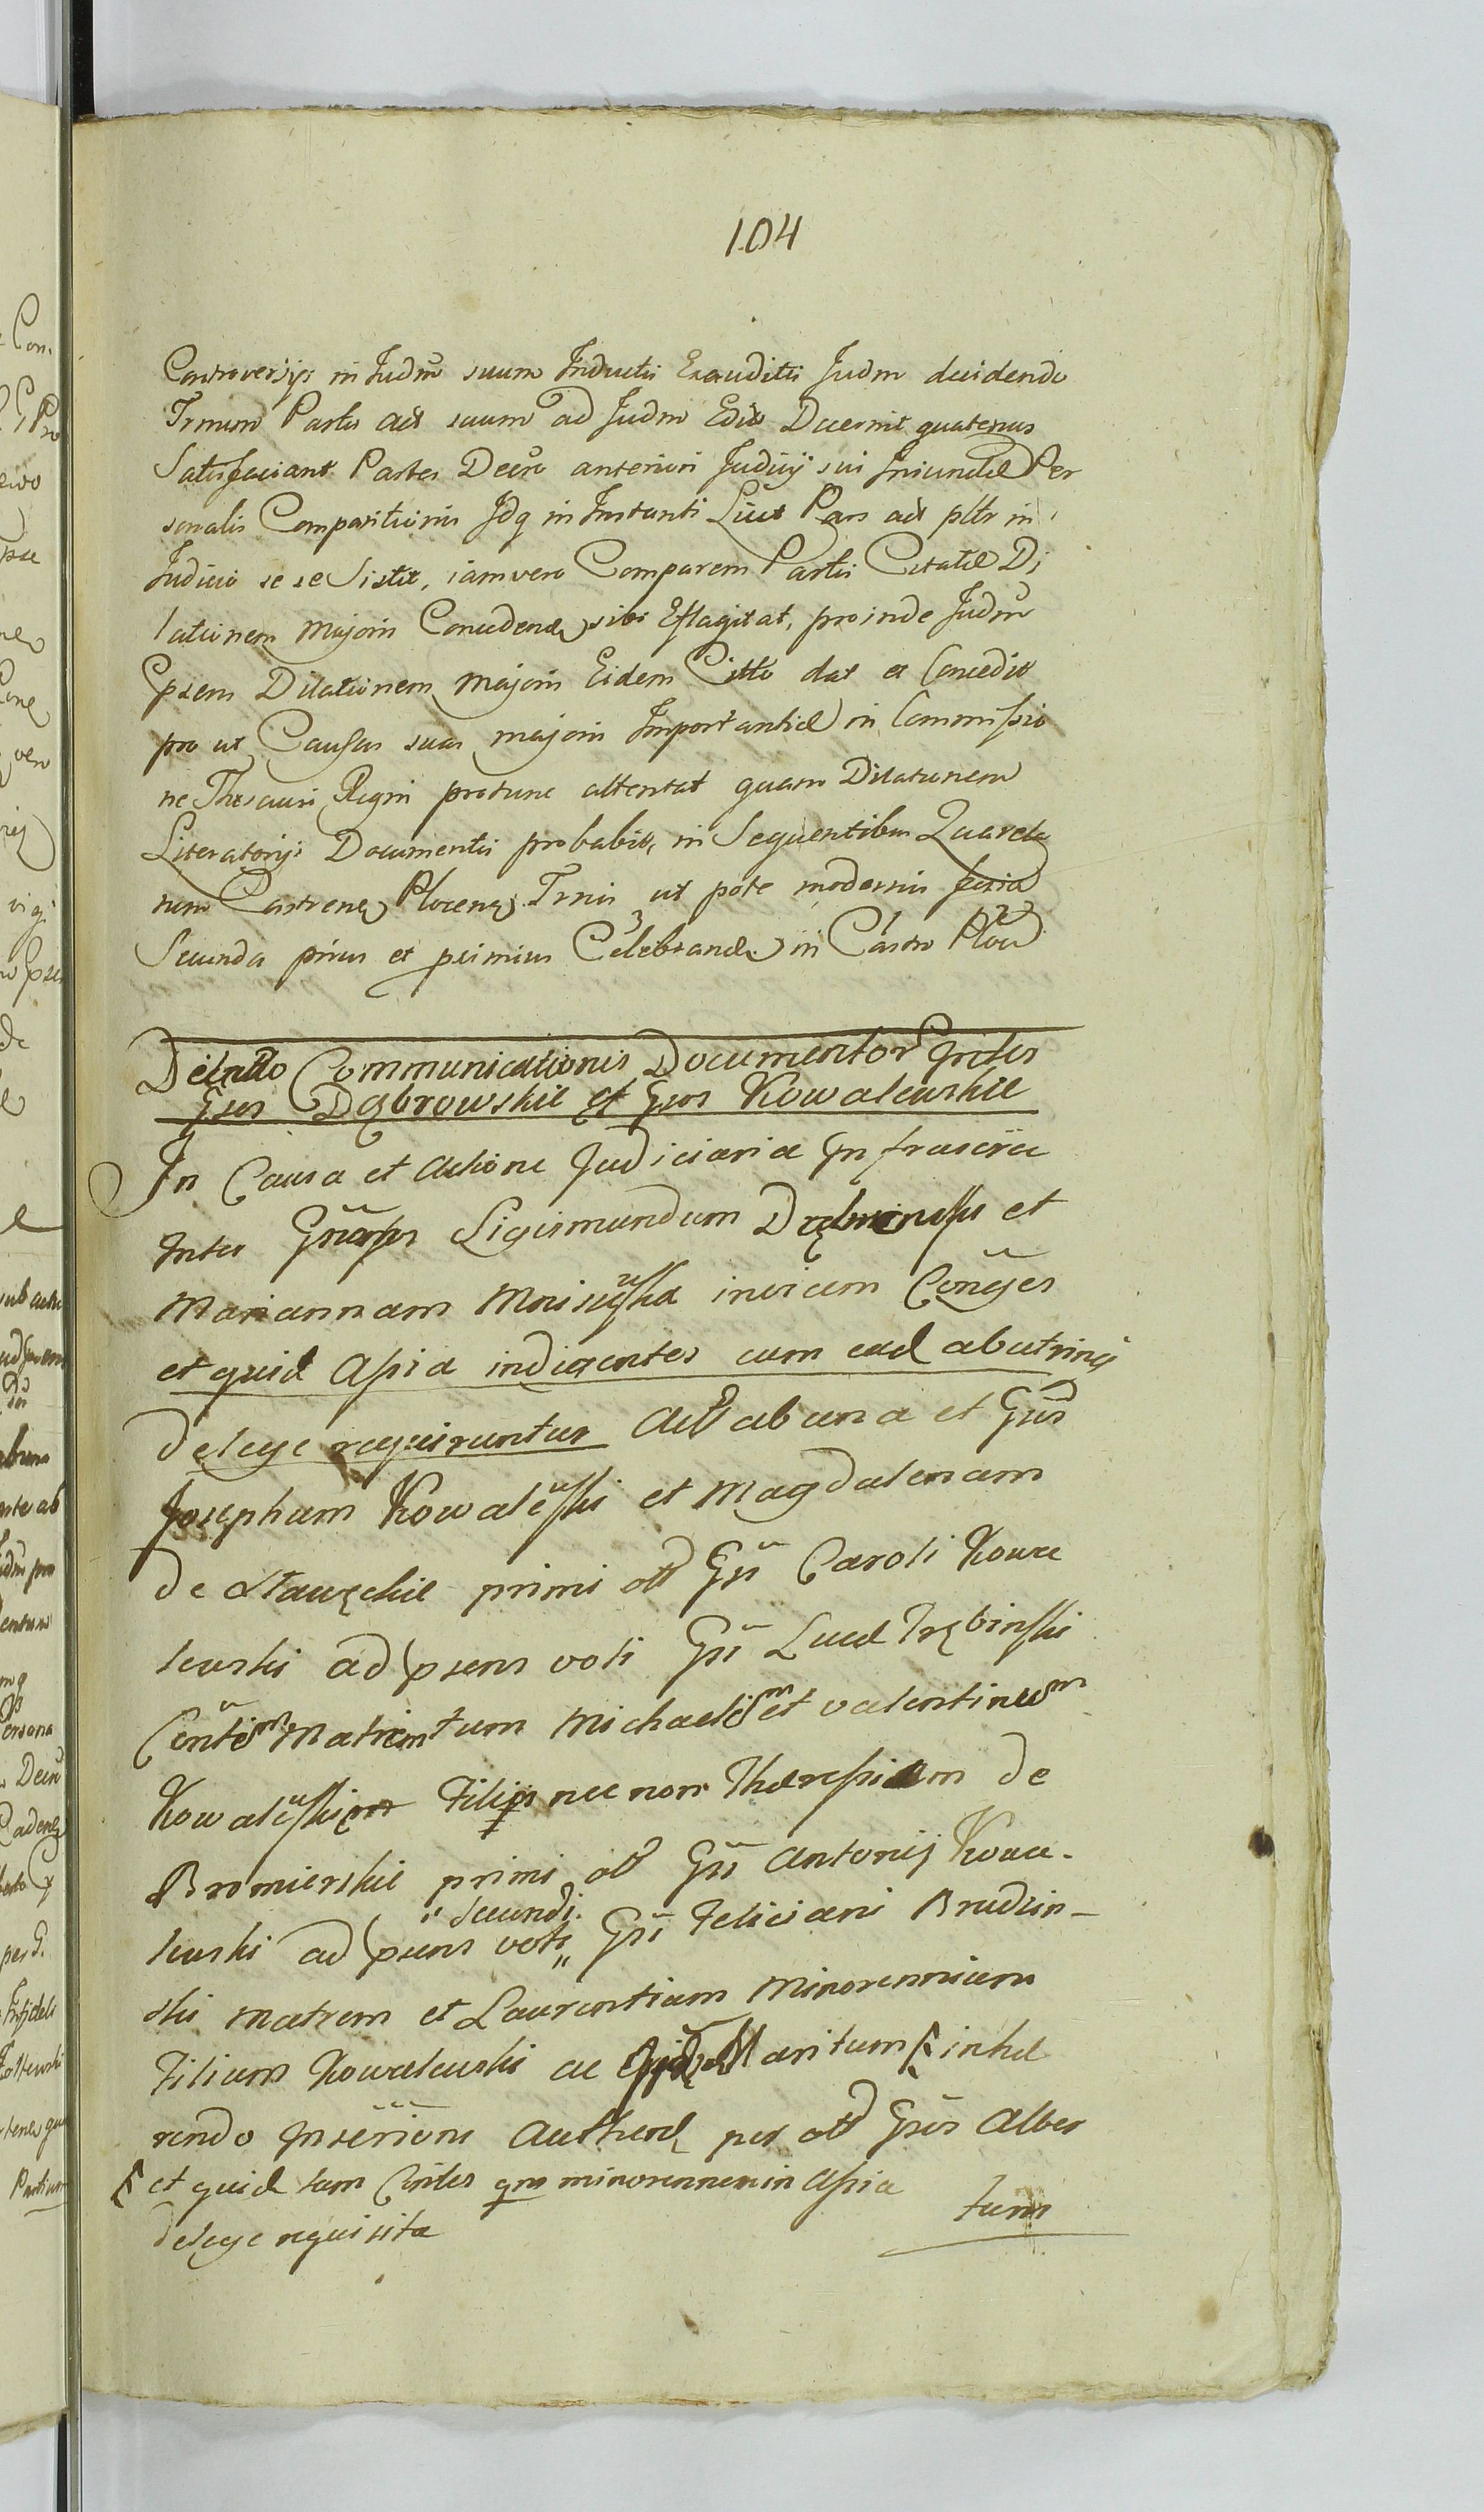 104
Controversijs in Judm̄ suum Inductis Exauditis Judm decidendo
Trnum Partis act suum ad Judm Edit Decernit quatenus
Satisfaciant Partes Decro anteriori Judicij sui Iniunctæ Per
sonalis Comparitionis Idq in Instanti Licet Pars act pltr in
Judicio se se Sistit, iam vero Comparem Partis Citatæ Di
lationem Majoris Concedend sibi Efflagitat, proinde Judm̄
Epsem Dilationem Majoris Eidem Citto dat et Concedit
pro ut Causas suas majoris Importantiæ in Commissio
ne Thesauri Regni protunc attentat quam Dilationem
Literatorijs Documentis probabit, in Sequentibus Quarela
rum Castren Plocen Trnis ut pote modernis feria
Secunda prius et primius Celebrand in Castro Ploc
Communicationis Documentor Inter
Gsos Dąbrowskie et Gsos Kowalewskie
In Causa et Actione Judiciaria Infrascrīa
Inter Sigismundum et
Mariannam invicem Conges
et quid Asia indigentes cum ead abutrinqs
de lege requiruntur Act ab una et Gsūs
Josephum Kowalewski et Magdalenam
de primi ott Gsi Caroli Kowa
lewski ad psens voti Gsi Lucæ Trębinski
Michaelem et valentinum
Kowalewski Filios nec non Theressiam de
Bromierskie primi ott Gsi Antonij Kowa-
" secundi.
lewski ad psens voti " Gsi Feliciani Brudzin-
ski Matrem et Laurentium Minorennium
Filium Kowalewski ac inhæ
rendo Inserīoni Authend per ott Gsūs Alber
et quid tam Cintes qm minorennem in Asia
de lege requisita
tum